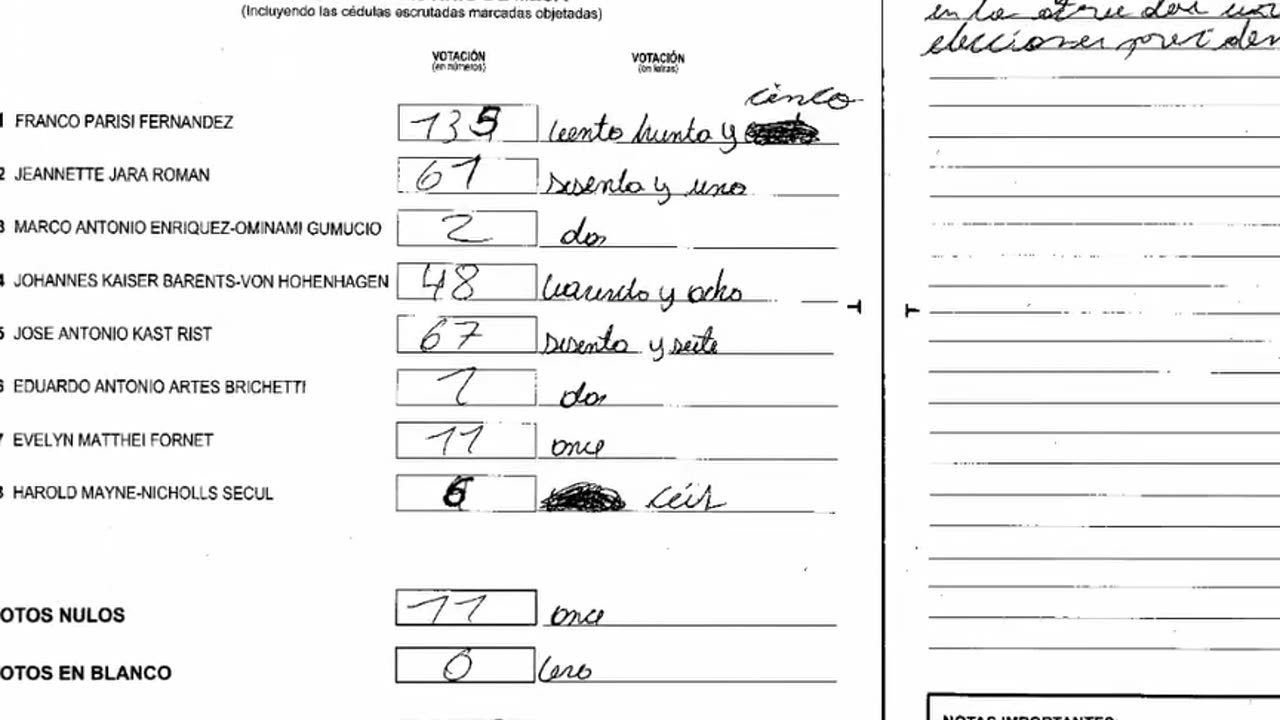 (Incluyendo las cédulas escrutadas marcadas objetadas)
VOTACIÓN
(en números)
VOTACIÓN
(en letras)
cinco
1 FRANCO PARISI FERNANDEZ 135 ciento trenta y
2 JEANNETTE JARA ROMAN 61 sesenta y uno
3 MARCO ANTONIO ENRIQUEZ-OMINAMI GUMUCIO 2 dos
4 JOHANNES KAISER BARENTS-VON HOHENHAGEN 48 cuarenta y ocho
5 JOSE ANTONIO KAST RIST 67 sesenta y seite
6 EDUARDO ANTONIO ARTES BRICHETTI 2 dos
7 EVELYN MATTHEI FORNET 11 once
8 HAROLD MAYNE-NICHOLLS SECUL 6 céis
OTOS NULOS 11 once
OTOS EN BLANCO 0 cero
en la
elecciones presiden
NOTAS IMPORTANTES: